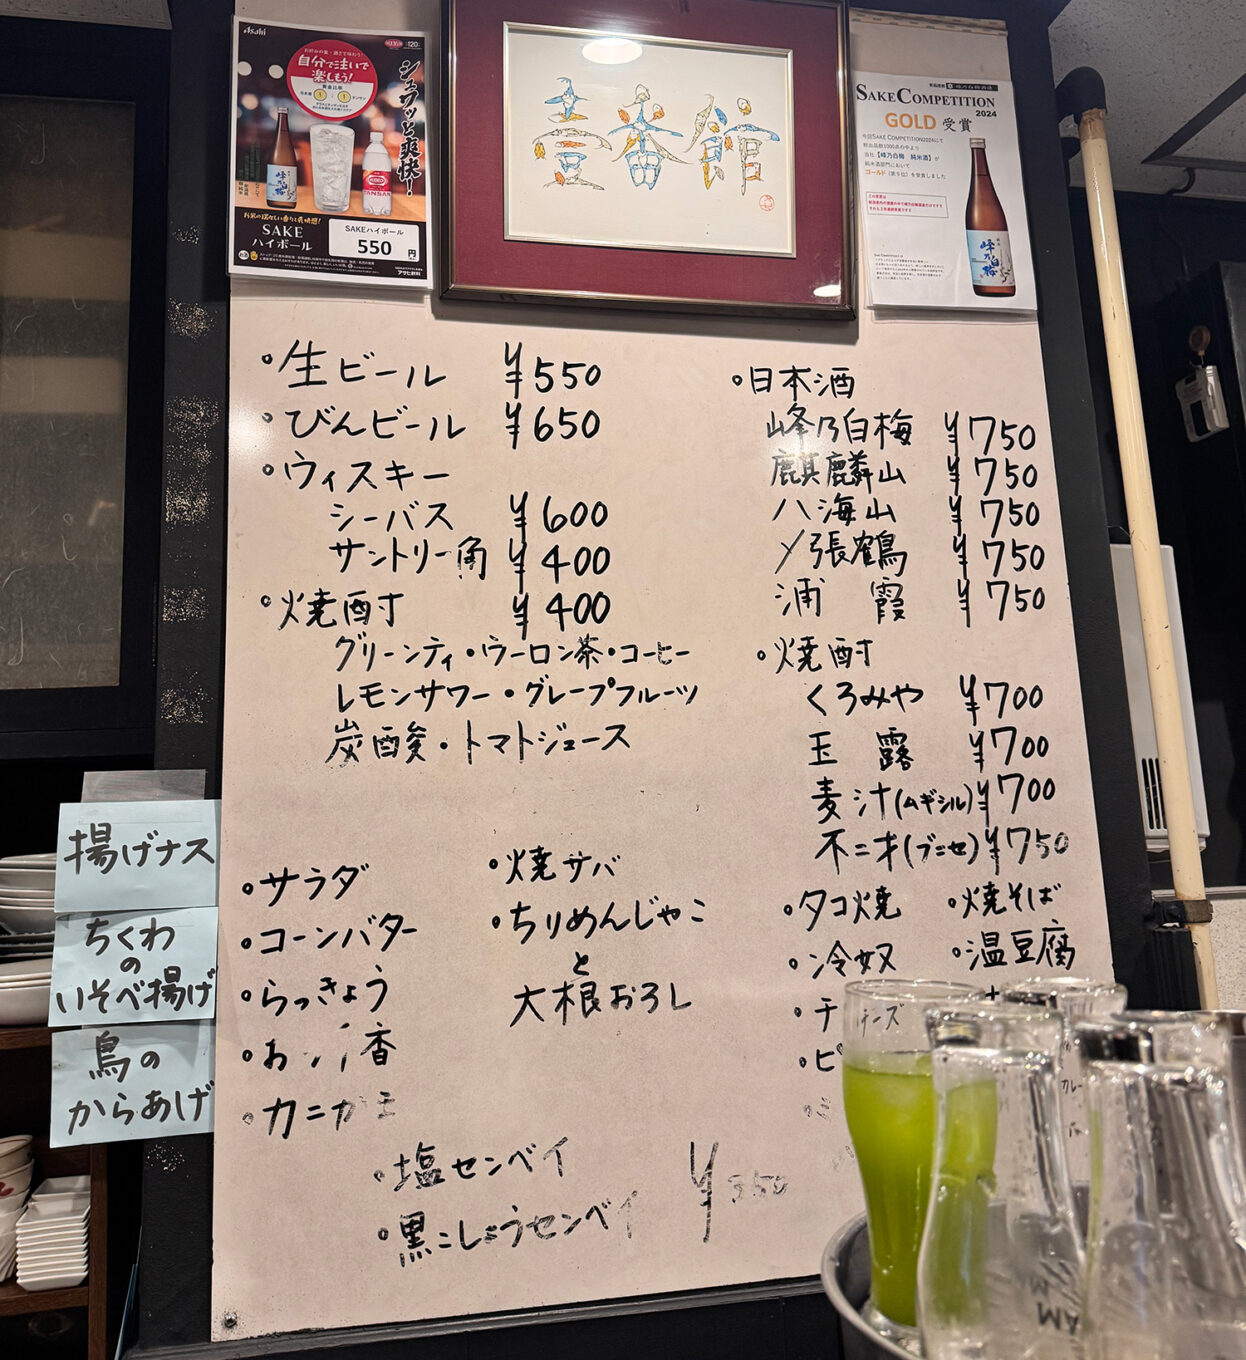 Asahi
自分で注いで
楽しもう!
シュワッと爽快!
峰乃白梅
TANSAN
お米の瑞々しい香りと爽快感!
SAKE
ハイボール
SAKEハイボール
550円
アサヒ飲料
壹番館
SAKE COMPETITION
2024
GOLD 受賞
今回SAKE COMPETITION2024にて
当社【峰乃白梅 純米酒】が
純米酒部門において
ゴールド(第9位)を受賞しました
峰乃白梅
・生ビール ¥550
・びんビール ¥650
・ウィスキー
シーバス ¥600
サントリー角 ¥400
・焼酎 ¥400
グリーンティ・ウーロン茶・コーヒー
レモンサワー・グレープフルーツ
炭酸・トマトジュース
・日本酒
峰乃白梅 ¥750
麒麟山 ¥750
八海山 ¥750
〆張鶴 ¥750
浦霞 ¥750
・焼酎
くろみや ¥700
玉露 ¥700
麦汁(ムギシル) ¥700
不二才(ブニセ) ¥750
揚げナス
ちくわ
の
いそべ揚げ
鳥の
からあげ
・サラダ
・コーンバター
・らっきょう
・お 香
・カニカ
・焼サバ
・ちりめんじゃこ
と
大根おろし
・タコ焼
・焼そば
・冷奴
・温豆腐
・チーズ
・ピ
カレー
・塩センベイ
・黒こしょうセンベイ
¥350